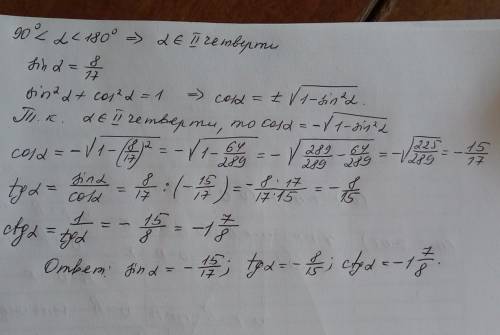 90° < α < 180° ⇒ α ∈ II четверти
sin α = 8/17
sin²α + cos²α = 1 ⇒ cos α = ± √(1-sin²α).
Т.к. α ∈ II четверти, то cos α = -√(1-sin²α)
cos α = -√(1-(8/17)²) = -√(1-64/289) = -√(289/289 - 64/289) = -√(225/289) = -15/17
tg α = sin α/cos α = 8/17 : (-15/17) = -8·17/17·15 = -8/15
ctg α = 1/tg α = -15/8 = -1 7/8
Ответ: sin α = -15/17; tg α = -8/15; ctg α = -1 7/8.